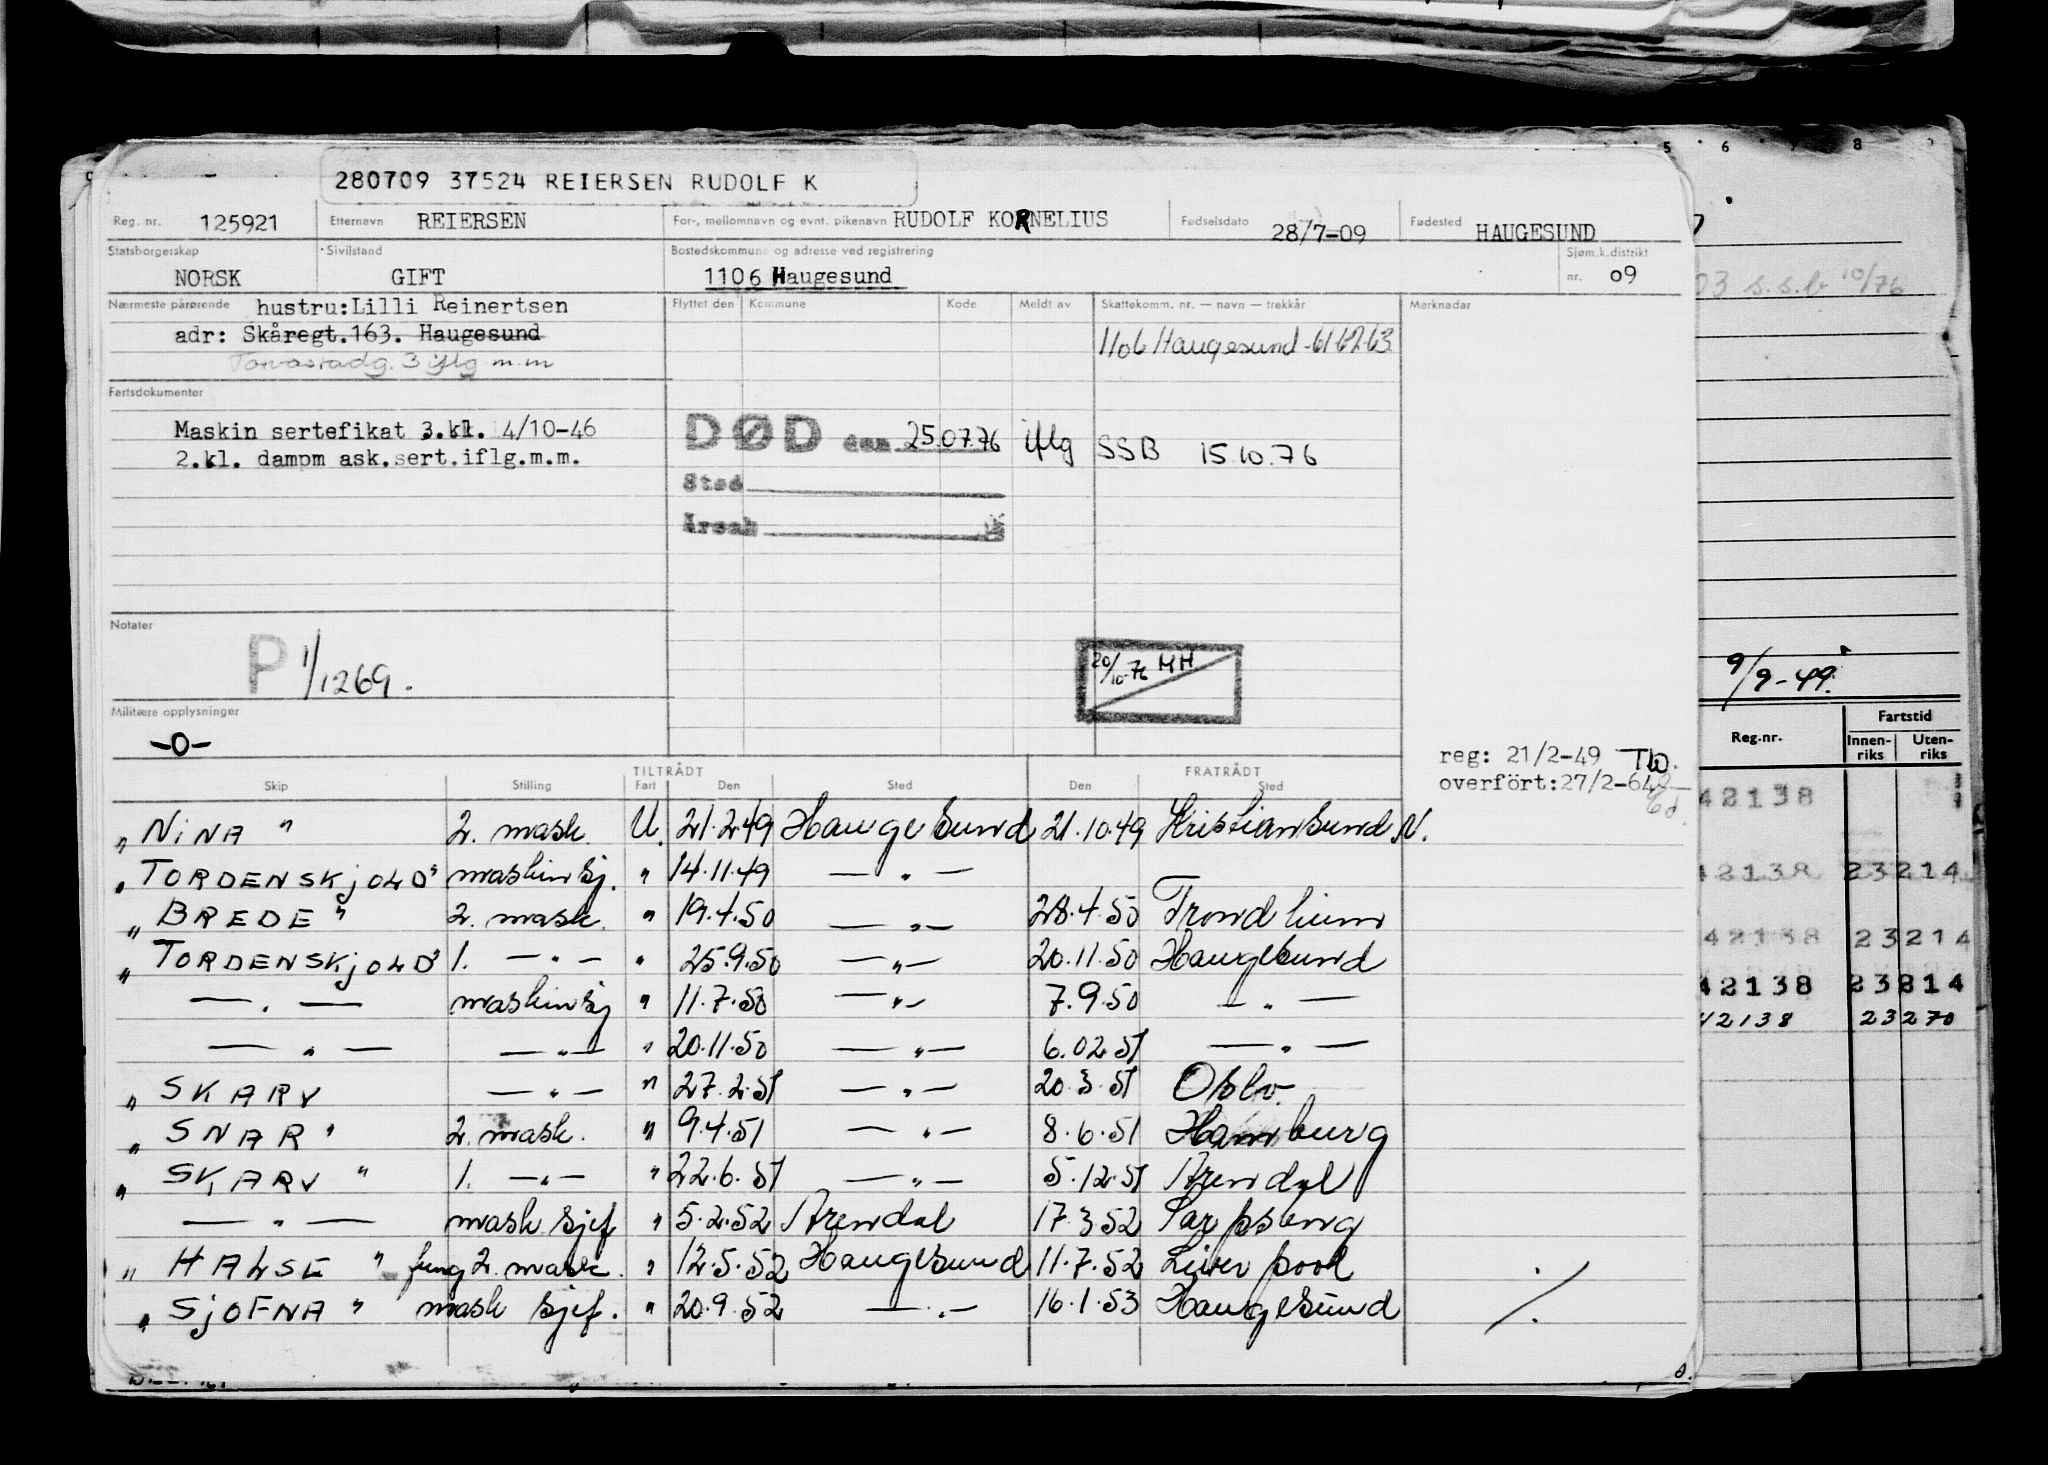 280709 37524 REIERSEN RUDOLF K
Reg. nr. 125921 Etternavn REIERSEN For-, mellomnavn og evnt. pikenavn RUDOLF KORNELIUS Fødselsdato 28/7-09 Fødested HAUGESUND
Statsborgerskap Sivilstand Bostedskommune og adresse ved registrering Sjøm.k.distrikt
NORSK GIFT 1106 Haugesund nr. 09
Nærmeste pårørende hustru:Lilli Reinertsen Flyttet den Kommune Kode Meldt av Skattekomm. nr. — navn — trekkår Merknader
adr: Skåregt.163. Haugesund 1106 Haugesund-61 62 63
3 iflg m.m
Fartsdokumenter
Maskin sertefikat 3.kl. 4/10-46 DØD den 25.07.76 iflg SSB 15 10.76
2.kl. dampm ask.sert.iflg.m.m.
Sted
Årsak
Notater
P 1/1269.
20/10-76 HH
Militære opplysninger
-0-
reg: 21/2-49
overført:27/2-64
TILTRÅDT FRATRÅDT
Skip Stilling Fart Den Sted Den Sted
„ NINA " 2. mask. U. 21.2.49 Haugesund 21.10.49 Kristiansund N.
„ TORDENSKjOLD" maskinsj. " 14.11.49 — " —
„ BREDE " 2. mask. " 19.4.50 — " — 28.4.50 Trondheim
„ TORDENSKjOLD" 1. — " — " 25.9.50 — " — 20.11.50 Haugesund
— " — maskinsj " 11.7.50 — " — 7.9.50 — " —
— " — — " — " 20.11.50 — " — 6.02.51 — " —
„ SKARV — " — " 27.2.51 — " — 20.3.51 Oslo.
„ SNAR " 2. mask. " 9.4.51 — " — 8.6.51 Hamburg
„ SKARV " 1. — " — " 22.6.51 — " — 5.12.51 Arendal
— " — mask sjef " 5.2.52 Arendal 17.3.52 Sarpsborg
„ HALSE " fung 2. mask. " 12.5.52 Haugesund 11.7.52 Liverpool
„ SjOFNA " mask sjef. " 20.9.52 — " — 16.1.53 Haugesund
5 6 8
03 s.s.b 10/76
9/9-49.
Reg.nr. Fartstid
Innen-riks Uten-riks
42138
42138 23214
42138 23214
42138 23214
42138 23270